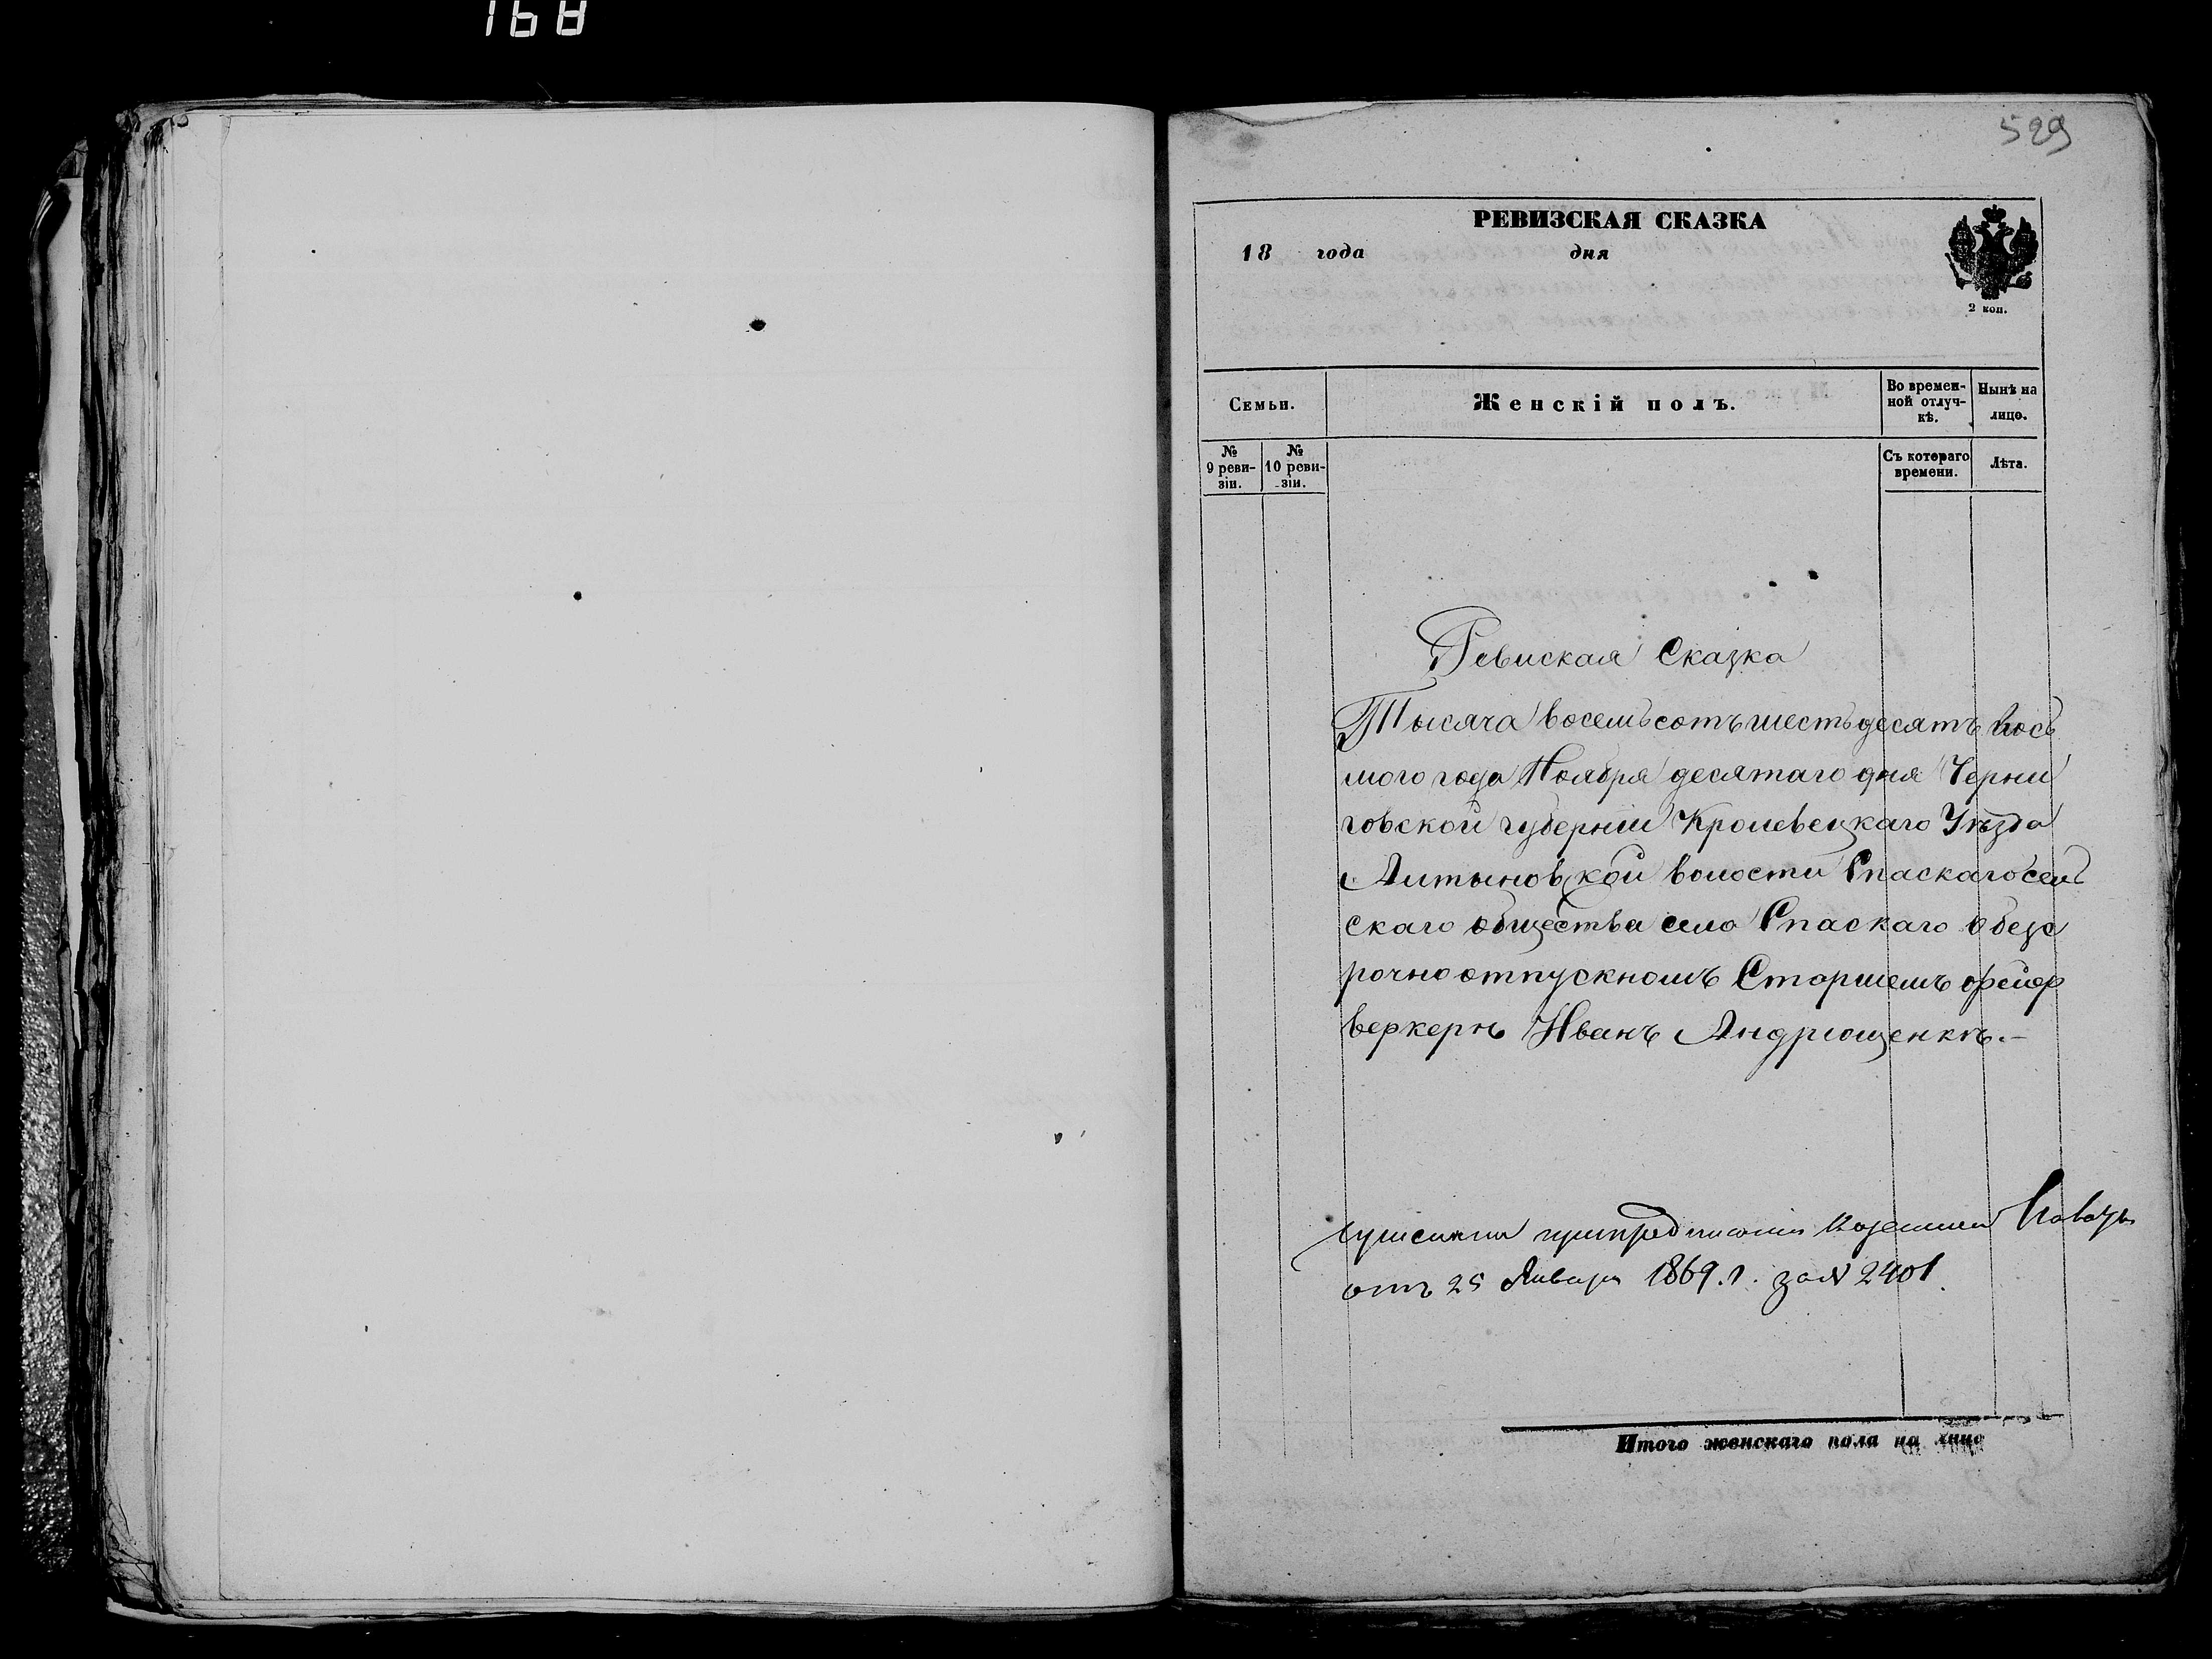 168
529
РЕВИЗСКАЯ СКАЗКА
18 года дня
2 коп.
Семьи.
Женскій полъ.
Во времен-
ной отлуч-
кѣ.
Нынѣ на
лицо.
№
9 реви-
зіи.
№
10 реви-
зіи.
Съ котораго
времени.
Лѣта.
Ревиская Сказка
Тысяча восемьсотъ шестьдесятъ вось
мого года Ноября десятаго дня Черни
говской губерніи Кролевецкаго Уѣзда
Алтыновской волости Спаскаго сель
скаго общества село Спаскаго о безс
рочно отпускномъ Старшемъ фейер
веркерѣ Иванѣ Андрющенкѣ.-
при предписаніи Казенной
отъ 25 Января 1869. г. за № 2401.
Итого женскаго пола на лицо